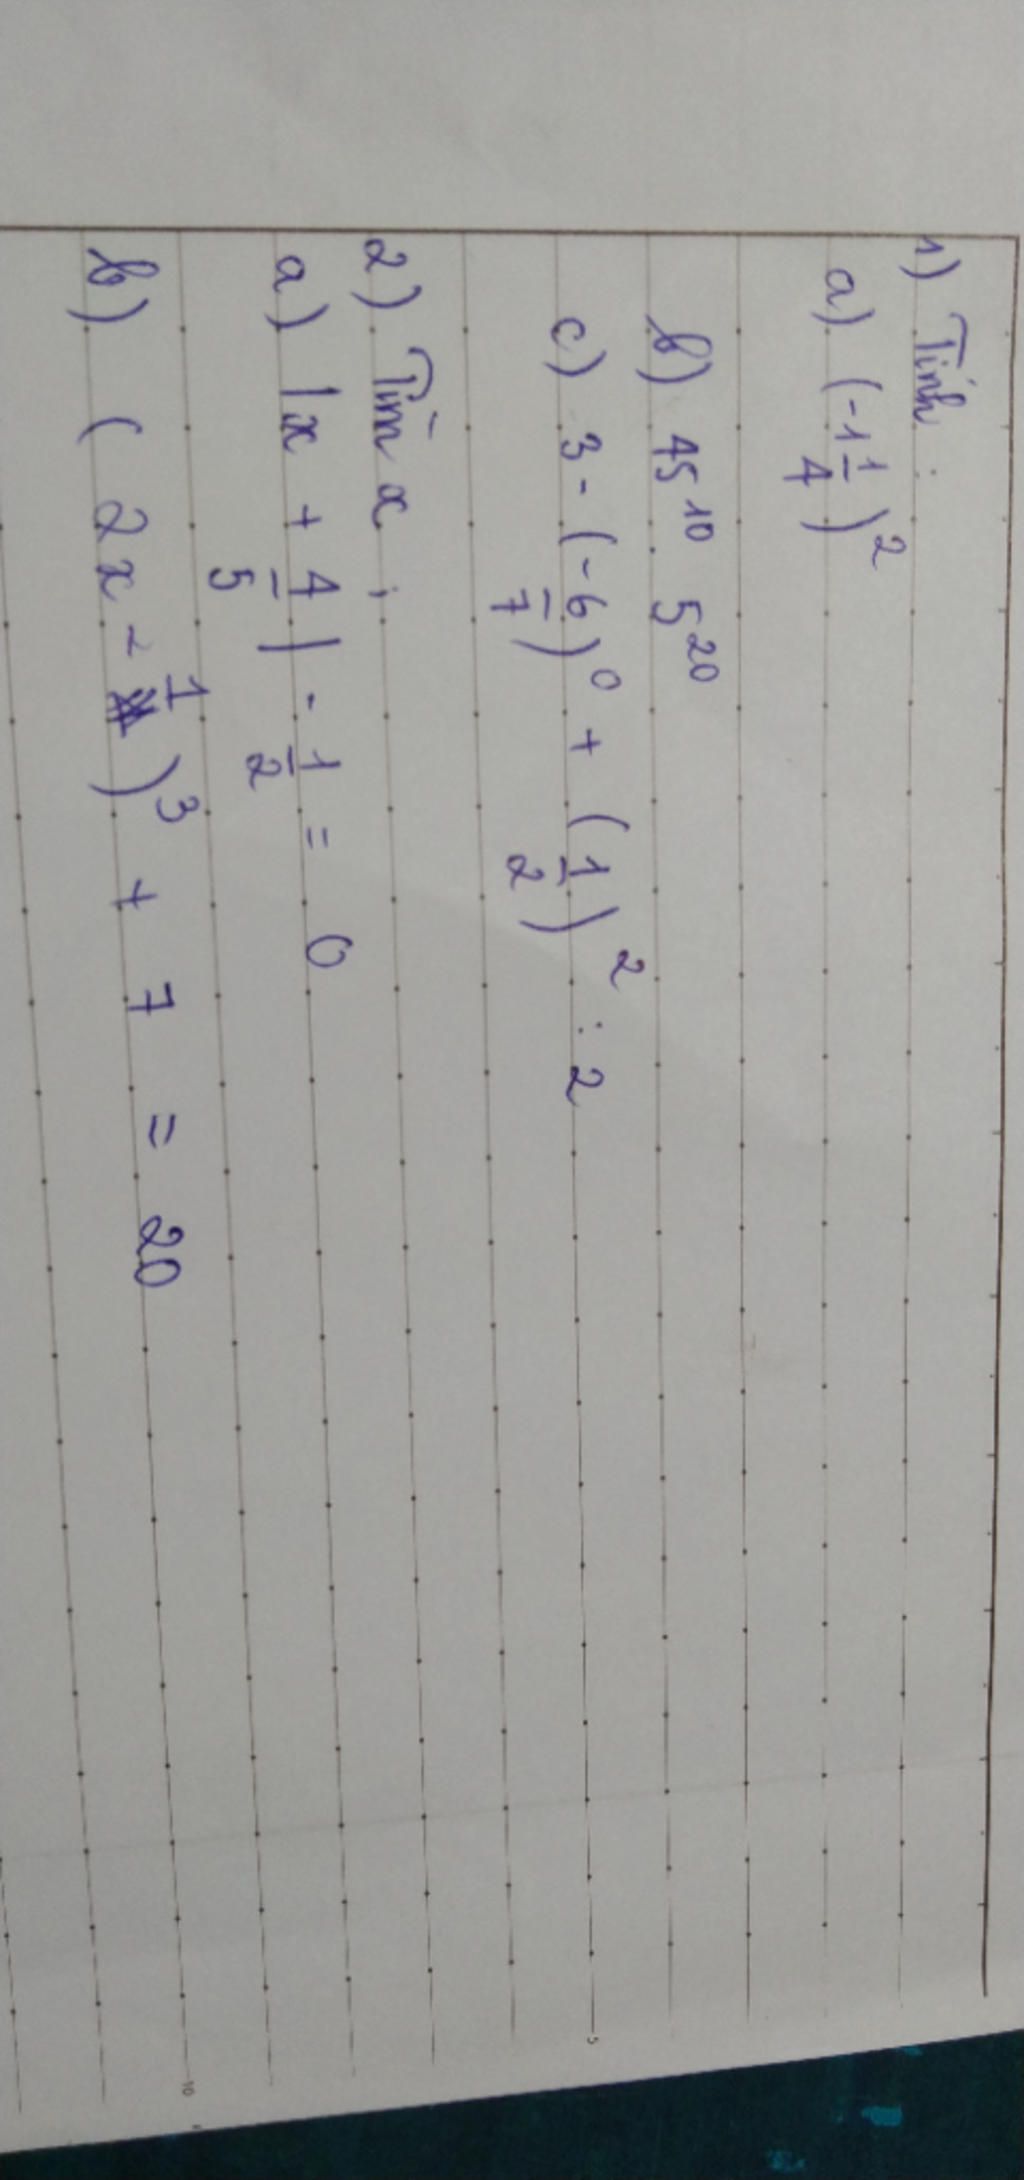 1) Tính :
a) (-1 1/4)²
b) 45¹⁰ . 5²⁰
c) 3 - (-6/7)⁰ + (1/2)² : 2
2) Tìm x ;
a) |x + 4/5| - 1/2 = 0
b) (2x - 1)³ + 7 = 20
5
10